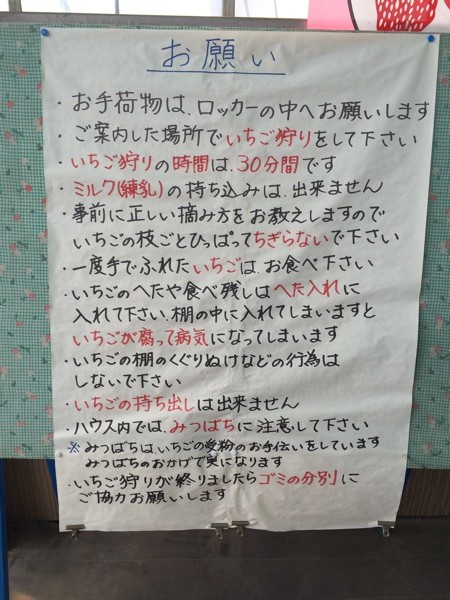 お願い
・お手荷物は、ロッカーの中へお願いします
・ご案内した場所でいちご狩りをして下さい
・いちご狩りの時間は、30分間です
・ミルク(練乳)の持ち込みは、出来ません
・事前に正しい摘み方をお教えしますので
いちごの枝ごとひっぱってちぎらないで下さい
・一度手でふれたいちごは、お食べ下さい
・いちごのへたや食べ残しはへた入れに
入れて下さい、棚の中に入れてしまいますと
いちごが腐って病気になってしまいます
・いちごの棚のくぐりぬけなどの行為は
しないで下さい
・いちごの持ち出しは出来ません
・ハウス内では、みつばちに注意して下さい
※みつばちは、いちごの受粉のお手伝いをしています
みつばちのおかげで実になります
・いちご狩りが終りましたらゴミの分別に
ご協力お願いします